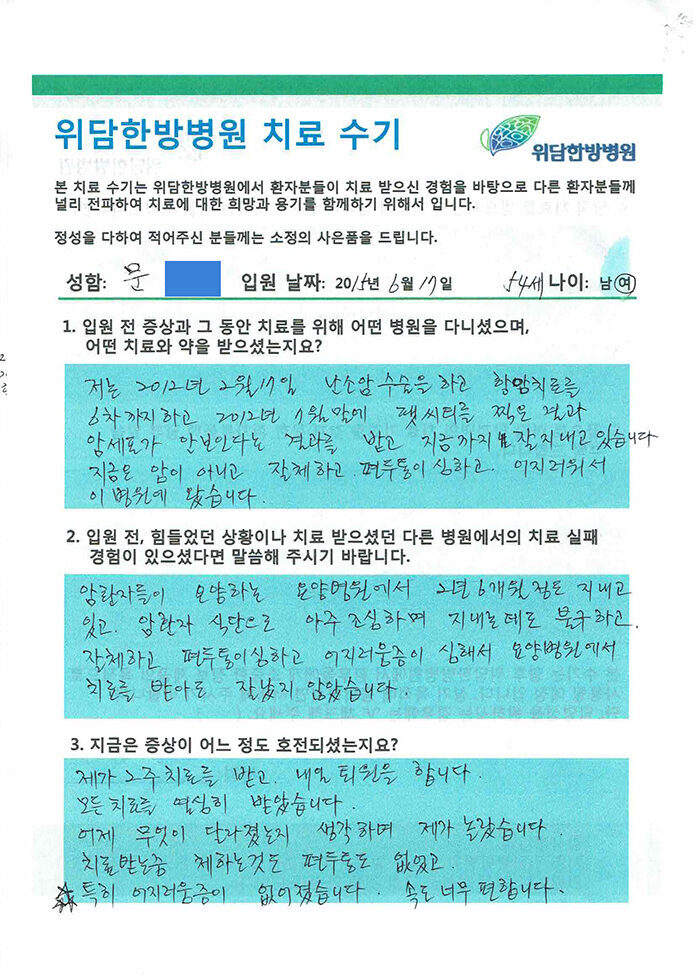 위담한방병원 치료 수기
위담한방병원
본 치료 수기는 위담한방병원에서 환자분들이 치료 받으신 경험을 바탕으로 다른 환자분들께
널리 전파하여 치료에 대한 희망과 용기를 함께하기 위해서 입니다.
정성을 다하여 적어주신 분들께는 소정의 사은품을 드립니다.
성함: 문 입원 날짜: 2015년 6월 17일 54세 나이: 남 여
1. 입원 전 증상과 그 동안 치료를 위해 어떤 병원을 다니셨으며,
어떤 치료와 약을 받으셨는지요?
저는 2012년 2월 17일 난소암 수술을 하고 항암치료를
6차까지 하고 2012년 7월말에 펫씨티를 찍은 결과
암세포가 안보인다는 결과를 받고 지금까지 잘지내고 있습니다
지금은 암이 아니고 잘체하고. 편두통이 심하고. 어지러워서
이 병원에 왔습니다.
2. 입원 전, 힘들었던 상황이나 치료 받으셨던 다른 병원에서의 치료 실패
경험이 있으셨다면 말씀해 주시기 바랍니다.
암환자들이 요양하는 요양병원에서 2년 6개월 정도 지내고
있고. 암환자 식단으로 아주 조심하며 지내는데도 불구하고.
잘체하고 편두통이심하고 어지러움증이 심해서 요양병원에서
치료를 받아도 잘낫지 않았습니다
3. 지금은 증상이 어느 정도 호전되셨는지요?
제가 2주 치료를 받고. 내일 퇴원을 합니다.
모든 치료를 열심히 받았습니다.
어제 무엇이 달라졌는지 생각하며 제가 놀랐습니다.
치료받는중 체하는것도 편두통도 없었고.
특히 어지러움증이 없어졌습니다. 속도 너무 편합니다.